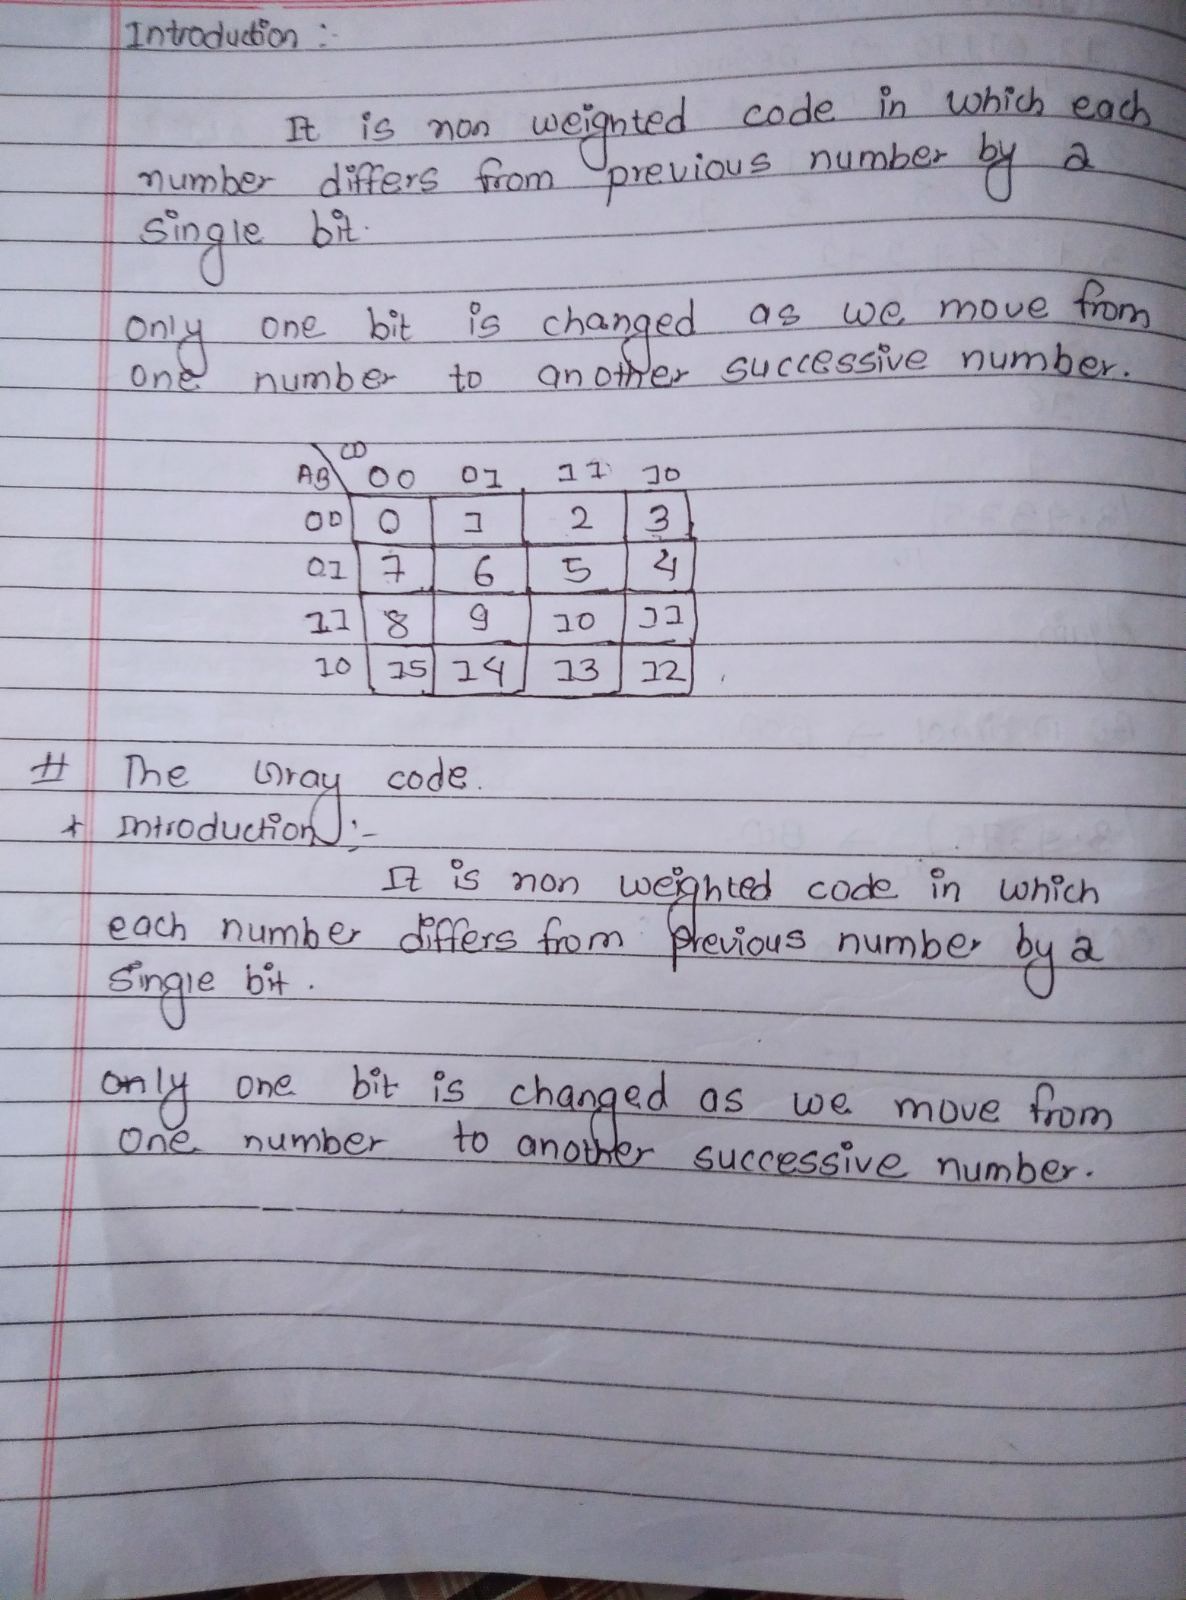 Introduction :-
It is non weighted code in which each
number differs from previous number by a
single bit.
only one bit is changed as we move from
one number to another successive number.
CD
AB 00 01 11 10
00 0 1 2 3
01 7 6 5 4
11 8 9 10 11
10 15 14 13 12
# The Gray code.
* Introduction :-
It is non weighted code in which
each number differs from previous number by a
single bit.
only one bit is changed as we move from
one number to another successive number.